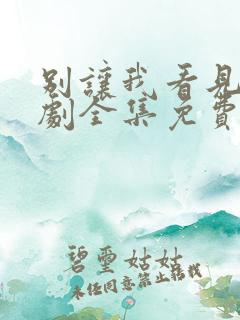 別讓我看見
劇全集免費
碧雲姑姑
未經同意禁止轉載